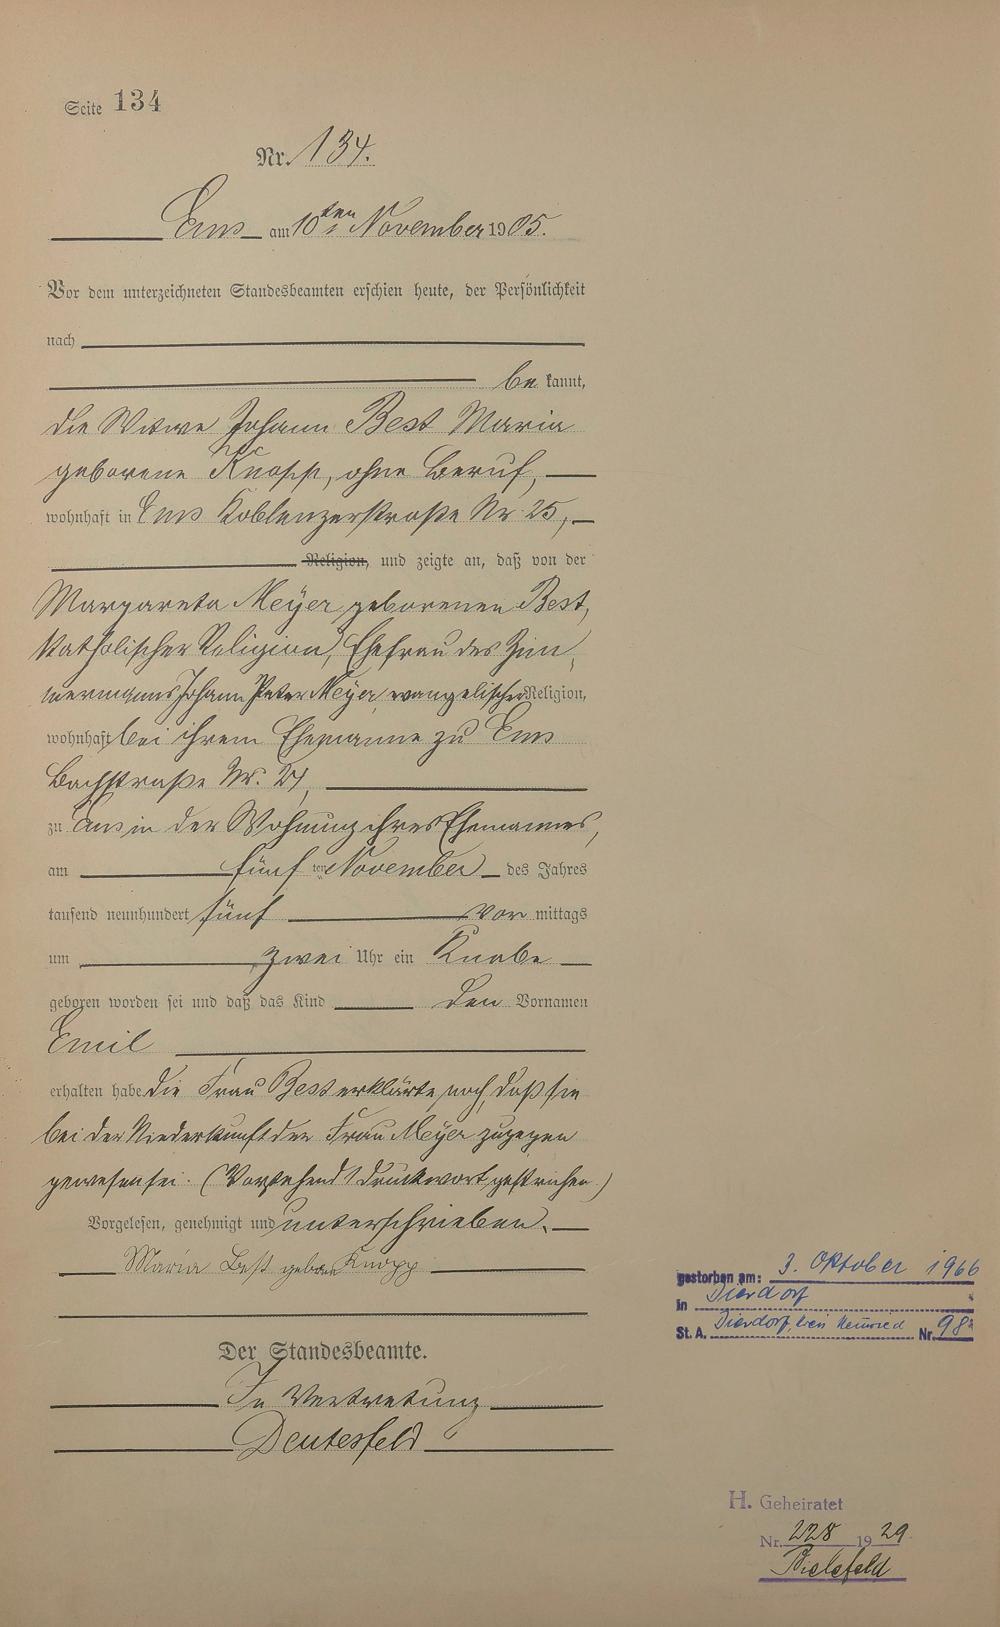 Seite 134
Nr. 134.
Ems am 10ten November 1905.
Vor dem unterzeichneten Standesbeamten erschien heute, der Persönlichkeit
nach
be kannt,
die Witwe Johann Best Maria
geborene Knopp, ohne Beruf,
wohnhaft in Ems Koblenzerstraße Nr. 25,
Religion, und zeigte an, daß von der
Margareta Meÿer geborenen Best,
katholischer Religion, Ehefrau des Zim,
mermanns Johann Peter Meÿer, evangelischer Religion,
wohnhaft bei ihrem Ehemanne zu Ems
Bachstraße Nr. 27,
zu Ems in der Wohnung ihres Ehemannes,
am fünf ten November des Jahres
tausend neunhundert fünf vor mittags
um zwei Uhr ein Knabe
geboren worden sei und daß das Kind den Vornamen
Emil
erhalten habe. Die Frau Best erklärte noch, daß sie
bei der Niederkunft der Frau Meÿer zugegen
gewesen sei. (Vorstehend 1 Druckwort gestrichen.)
Vorgelesen, genehmigt und unterschrieben.
Maria Best geborne Knopp
Der Standesbeamte.
In Vertretung
Deutesfeld
gestorben am: 3. Oktober 1966
in Dierdorf
St. A. Dierdorf, Kreis Neuwied Nr. 98
H. Geheiratet
Nr. 228 1929
Bielefeld